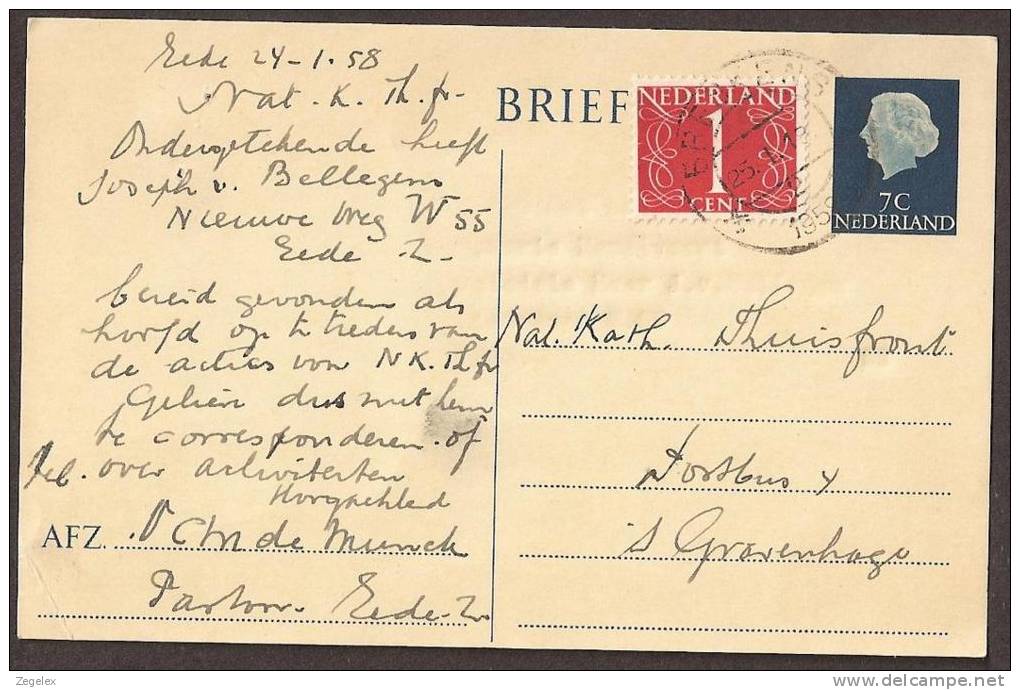 Eede 24-1.58
Nat. K. Th. fr.
Ondergetekende heeft
Joseph v. Bellegem
Nieuwe Weg W 55
Eede Z.
bereid gevonden als
hoofd op te treden van
de acties van N K. Th fr
Gelieve dus met hem
te corresponderen of
tel. over activiteiten
Hoogachtend
AFZ. P CM de Munck
Pastoor. Eede-Z.
BRIEF
NEDERLAND
1
CENT
25.1.13
1958
7C
NEDERLAND
Nat. Kath. Thuisfront
Postbus 4
's Gravenhage
Zegelex
www.delcampe.net